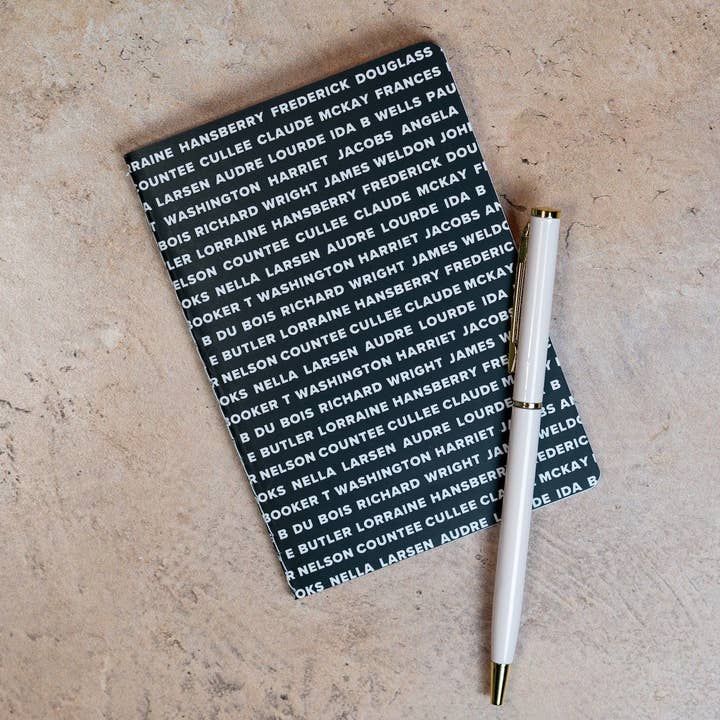 RRAINE HANSBERRY FREDERICK DOUGLASS
COUNTEE CULLEE CLAUDE MCKAY FRANCES
A LARSEN AUDRE LOURDE IDA B WELLS PAU
T WASHINGTON HARRIET JACOBS ANGELA
BOIS RICHARD WRIGHT JAMES WELDON JOH
LER LORRAINE HANSBERRY FREDERICK DOU
ELSON COUNTEE CULLEE CLAUDE MCKAY F
OKS NELLA LARSEN AUDRE LOURDE IDA B
OOKER T WASHINGTON HARRIET JACOBS AN
B DU BOIS RICHARD WRIGHT JAMES WELDO
E BUTLER LORRAINE HANSBERRY FREDERIC
R NELSON COUNTEE CULLEE CLAUDE MCKAY
OKS NELLA LARSEN AUDRE LOURDE IDA
OOKER T WASHINGTON HARRIET JACOBS
B DU BOIS RICHARD WRIGHT JAMES WE
E BUTLER LORRAINE HANSBERRY FRE
R NELSON COUNTEE CULLEE CLAUDE MCKAY
OKS NELLA LARSEN AUDRE LOURDE
BOOKER T WASHINGTON HARRIET JACOBS AN
B DU BOIS RICHARD WRIGHT JAM WELDO
E BUTLER LORRAINE HANSBERR FREDERIC
R NELSON COUNTEE CULLEE CLA MCKAY
OKS NELLA LARSEN AUDRE LOURDE IDA B